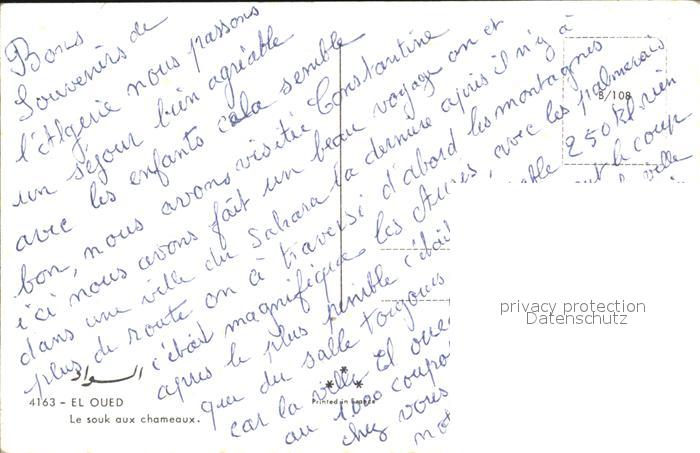 Bons
Souvenirs de
l'Algerie nous passons
un séjour bien agréable
avec les enfants cela semble
bon, nous avons visitée Constantine
ici nous avons fait un beau voyage on et
dans une ville du Sahara la dernière après il n'y à
plus de route on à traversé d'abord les montagnes
c'était magnifique les Aurès, avec les palmerais
après le plus penible c'était 250 kl rien
que du salle toujours le coup
car la ville El oue ville
au 1.000 coupo
chez vous
not
B/108
السواد
4163 - EL OUED
Le souk aux chameaux.
Printed in France
privacy protection
Datenschutz